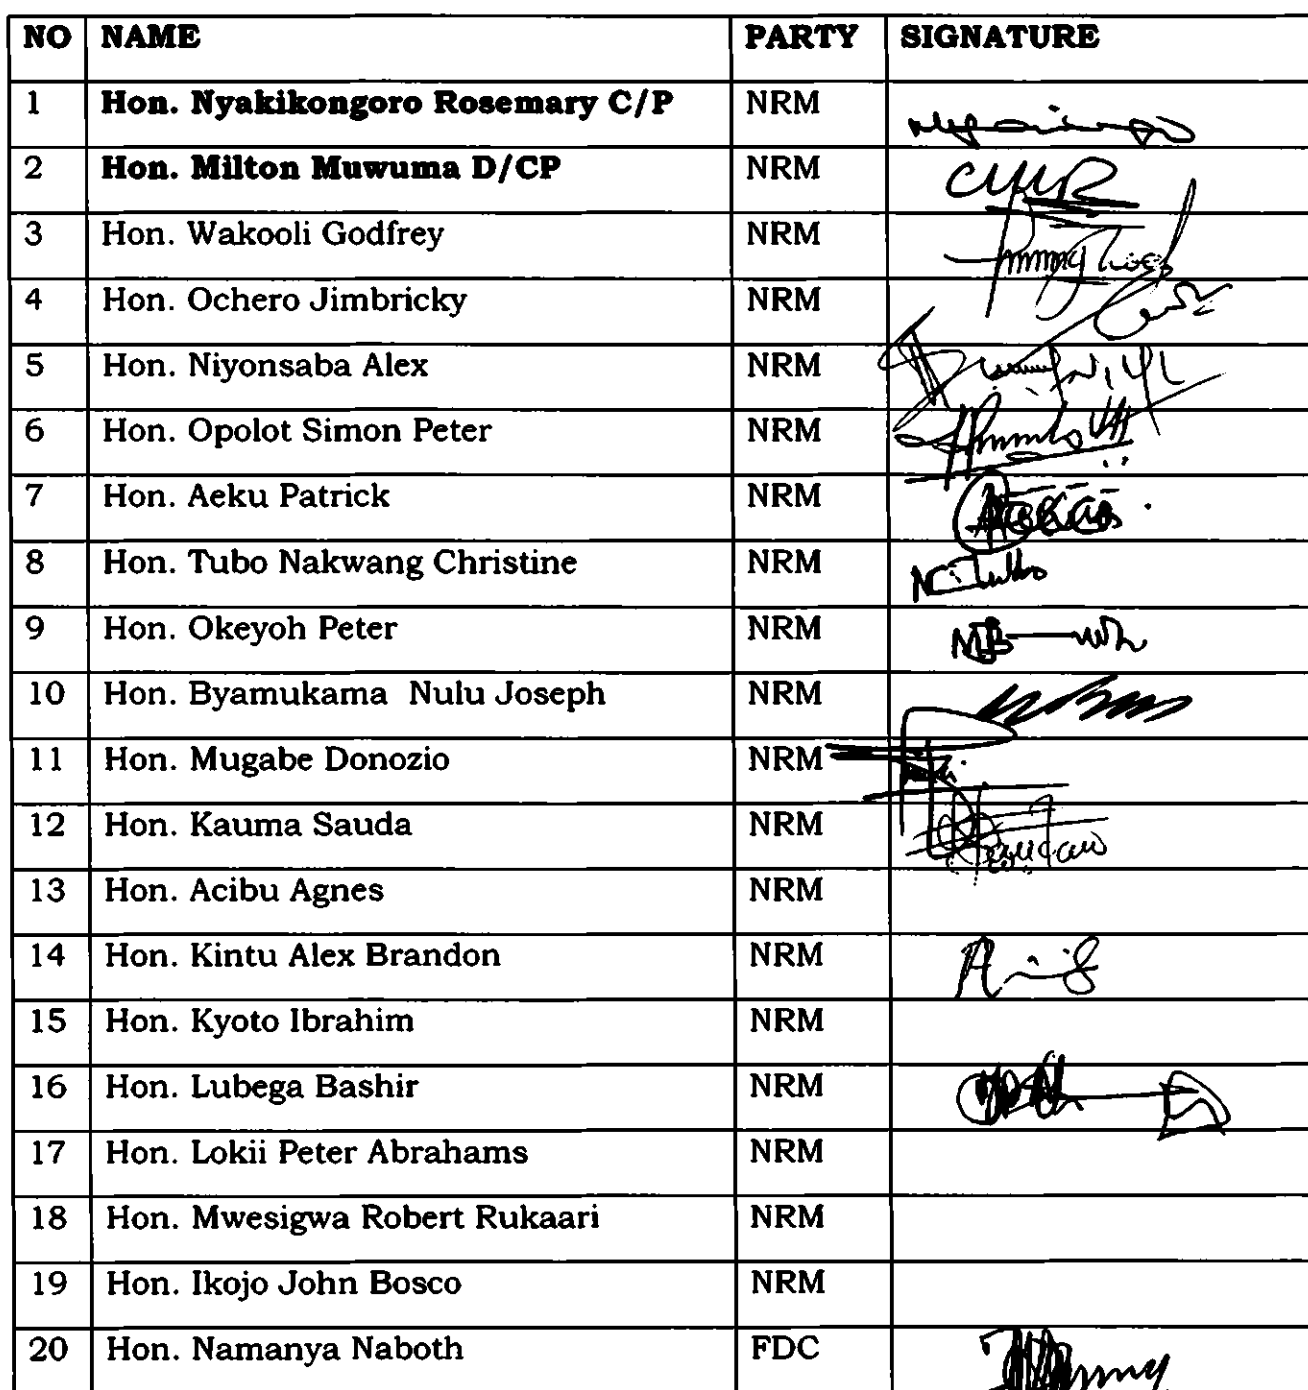 NO NAME PARTY SIGNATURE
1 Hon. Nyakikongoro Rosemary C/P NRM
2 Hon. Milton Muwuma D/CP NRM
3 Hon. Wakooli Godfrey NRM
4 Hon. Ochero Jimbricky NRM
5 Hon. Niyonsaba Alex NRM
6 Hon. Opolot Simon Peter NRM
7 Hon. Aeku Patrick NRM
8 Hon. Tubo Nakwang Christine NRM
9 Hon. Okeyoh Peter NRM
10 Hon. Byamukama Nulu Joseph NRM
11 Hon. Mugabe Donozio NRM
12 Hon. Kauma Sauda NRM
13 Hon. Acibu Agnes NRM
14 Hon. Kintu Alex Brandon NRM
15 Hon. Kyoto Ibrahim NRM
16 Hon. Lubega Bashir NRM
17 Hon. Lokii Peter Abrahams NRM
18 Hon. Mwesigwa Robert Rukaari NRM
19 Hon. Ikojo John Bosco NRM
20 Hon. Namanya Naboth FDC